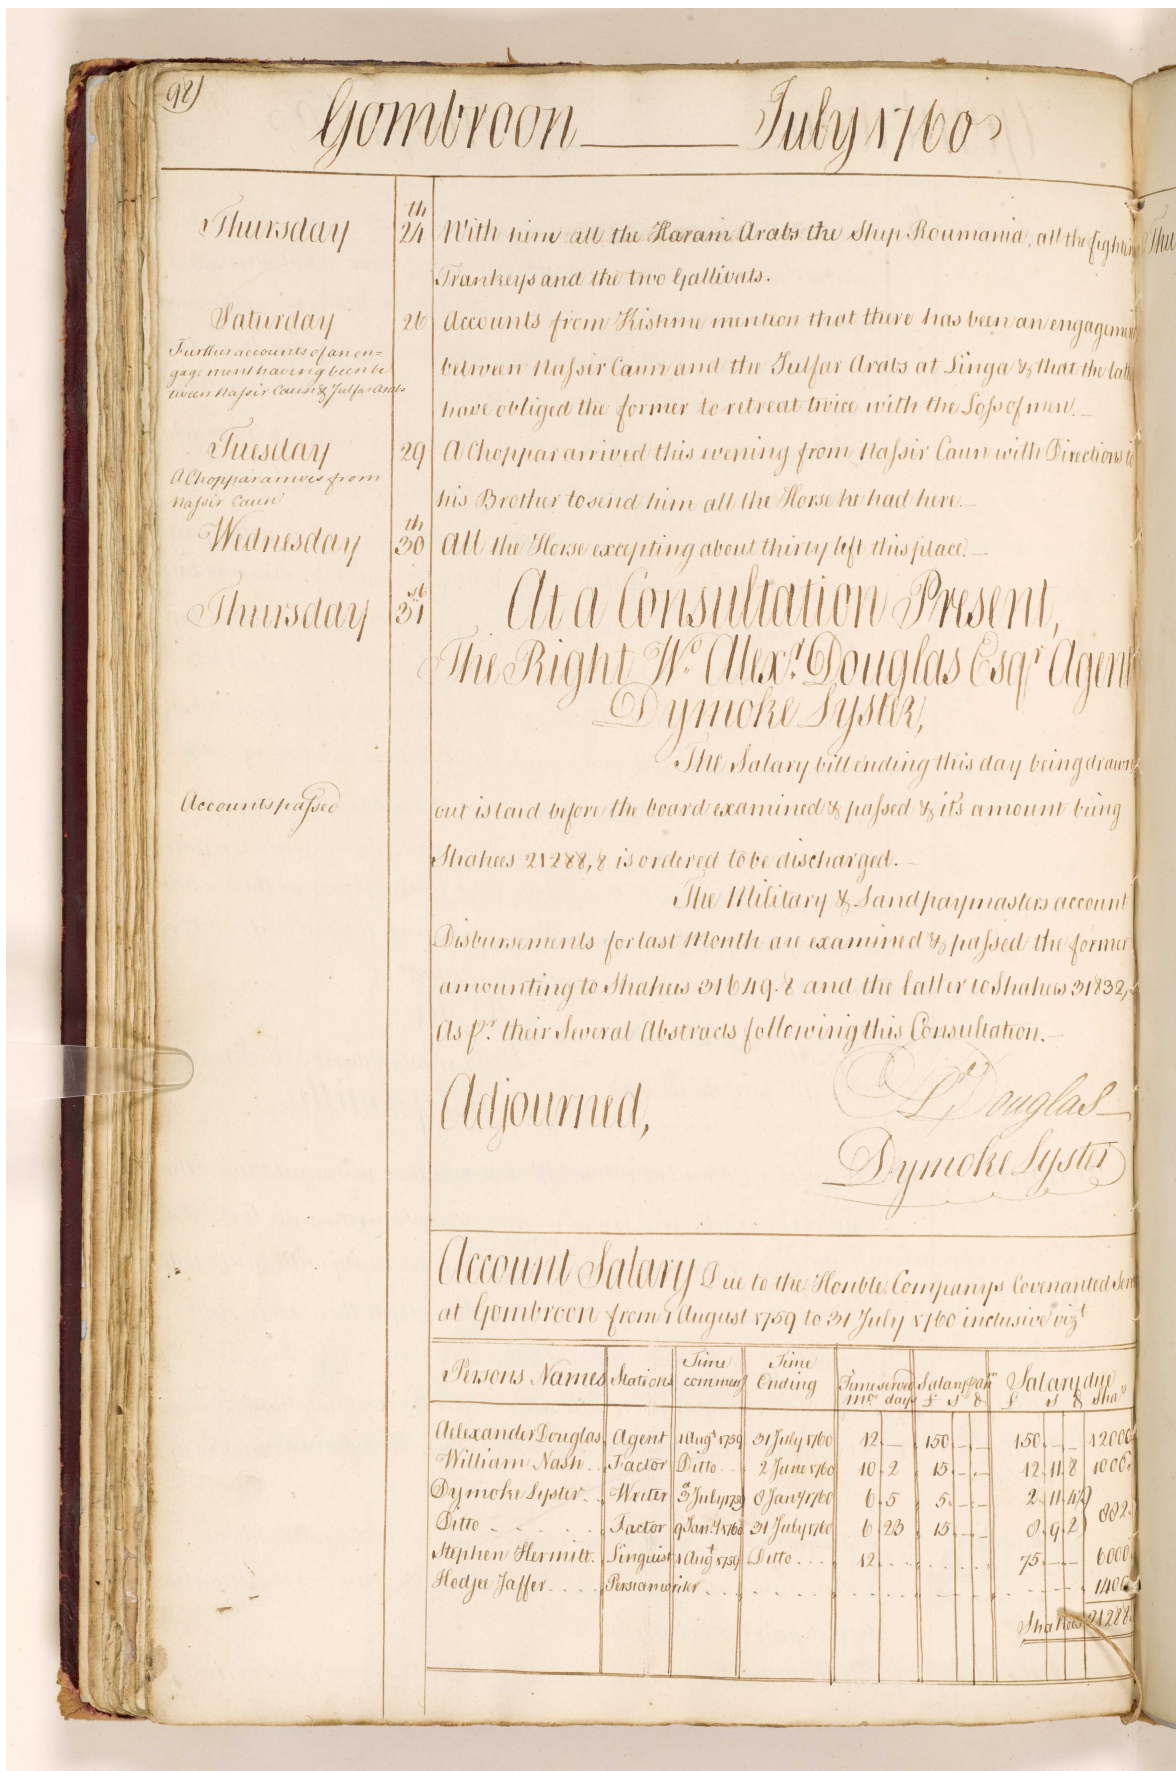 98)
Gombroon July 1760
Thursday 24th With him all the Haram Arabs the Ship Roumania, all the fighting
Trankeys and the two Gallivats.
Saturday 26 Accounts from Kishme mention that there has been an engagem
Further accounts of an en=
gagement having been be
tween Nassir Caun & Julfar Arabs
between Nassir Caun and the Julfar Arabs at Linga & that the latt
have obliged the former to retreat twice with the Loss of men.
Tuesday 29 A Choppar arrived this evening from Nassir Caun with Directions to
A Choppar arrives from
Nassir Caun
his Brother to send him all the Horse he had here.
Wednesday 30th All the Horse excepting about thirty left this place.
Thursday 31st At a Consultation Present,
The Right Wo. Alexr. Douglas Esqr Agent
Dymoke Lyster,
The Salary bill ending this day being drawn
Accounts passed
out is laid before the board examined & passed & it's amount being
Shahees 21288,8 is ordered to be discharged.
The Military & Land paymasters account
Disbursements for last Month are examined & passed the former
amounting to Shahees 31649.8 and the latter to Shahees 31832,
As pr. their Several Abstracts following this Consultation.
Adjourned,
Ar Douglas
Dymoke Lyster
Account Salary Due to the Honble. Companys Covenanted Serv
at Gombroon from 1 August 1759 to 31 July 1760 inclusive vizt
Persons Names Stations Time commenc Time Ending Time served mos days Salary pr Ann £ s d Salary due £ s d Shas
Aelexander Douglas Agent 1 Augt 1759 31 July 1760 12 - 150 - - 150 - - 12000
William Nash Factor Ditto 2 June 1760 10 2 15 - - 12 11 8 1006
Dymoke Lyster Writer 3d July 1759 8 Jany 1760 6 5 5 - - 2 11 4½
Ditto Factor 9 Jany 1760 31 July 1760 6 23 15 - - 8 9 2 882
Stephen Hermitt Linguist 1 Augt 1759 Ditto 12 75 - - 6000
Hodjee Jaffer Persian writer 1400
Shahees 21288